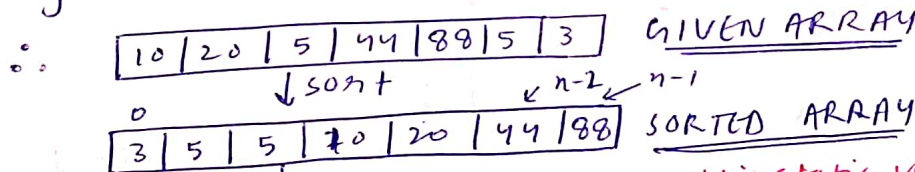 ∴ 10 | 20 | 5 | 44 | 88 | 5 | 3 GIVEN ARRAY
↓ sort
0 n-2 n-1
3 | 5 | 5 | 10 | 20 | 44 | 88 SORTED ARRAY